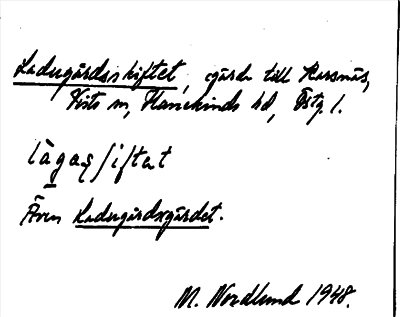 Ladugårdsskiftet, gärde till Karsnäs,
Vists sn, Hanekinds hd, Östg. l.
làgaʃʃiftat
Även Ladugårdsgärdet.
M. Nordlund 1948.